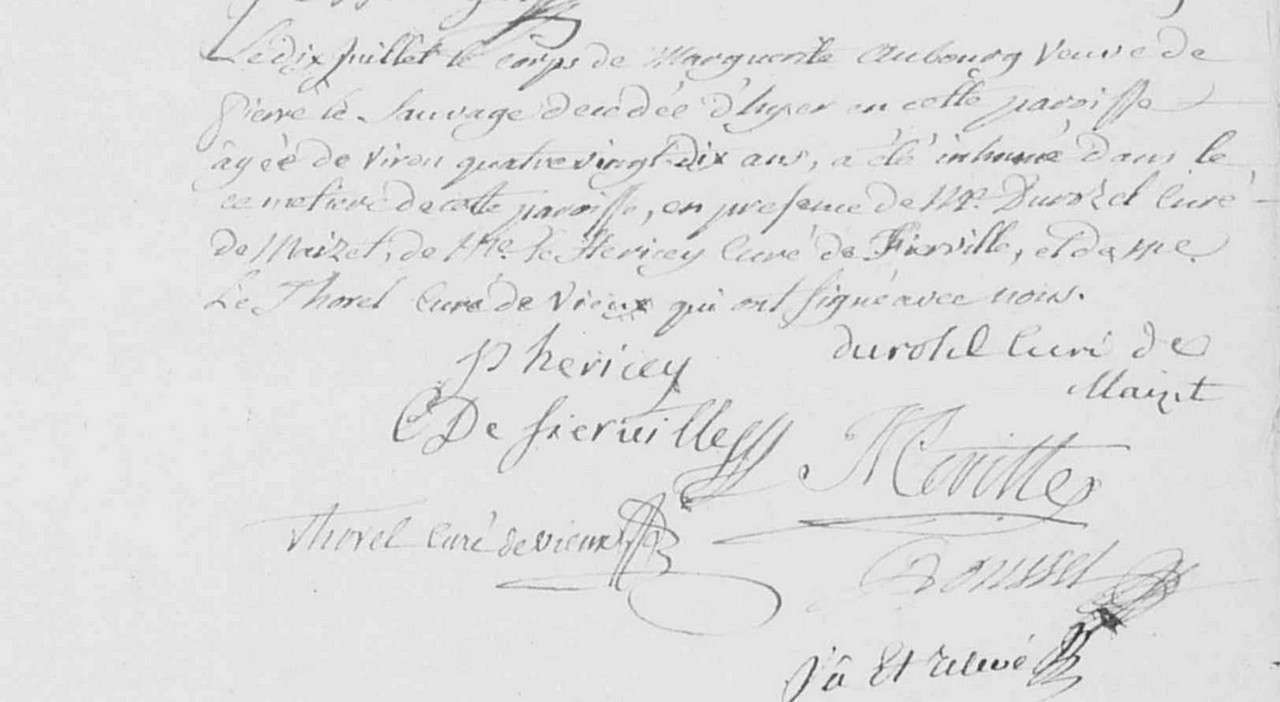 Le dix juillet le corps de Marguerite Aubourg Veuve de
Pierre le Sauvage decedée d'hyer en cette paroisse
âgée de viron quatre vingt dix ans, a été inhumé dans le
cemetiere de cette paroisse, en presence de Mre. Durozel Curé
de Maizet, de Mre. le Hericey Curé de Fierville, et de Mre.
Le Thorel Curé de Vieux qui ont signé avec nous.
hericey
durosel Curé de
Maizet
C De fierville
Thorel Curé de vieux
Rousset